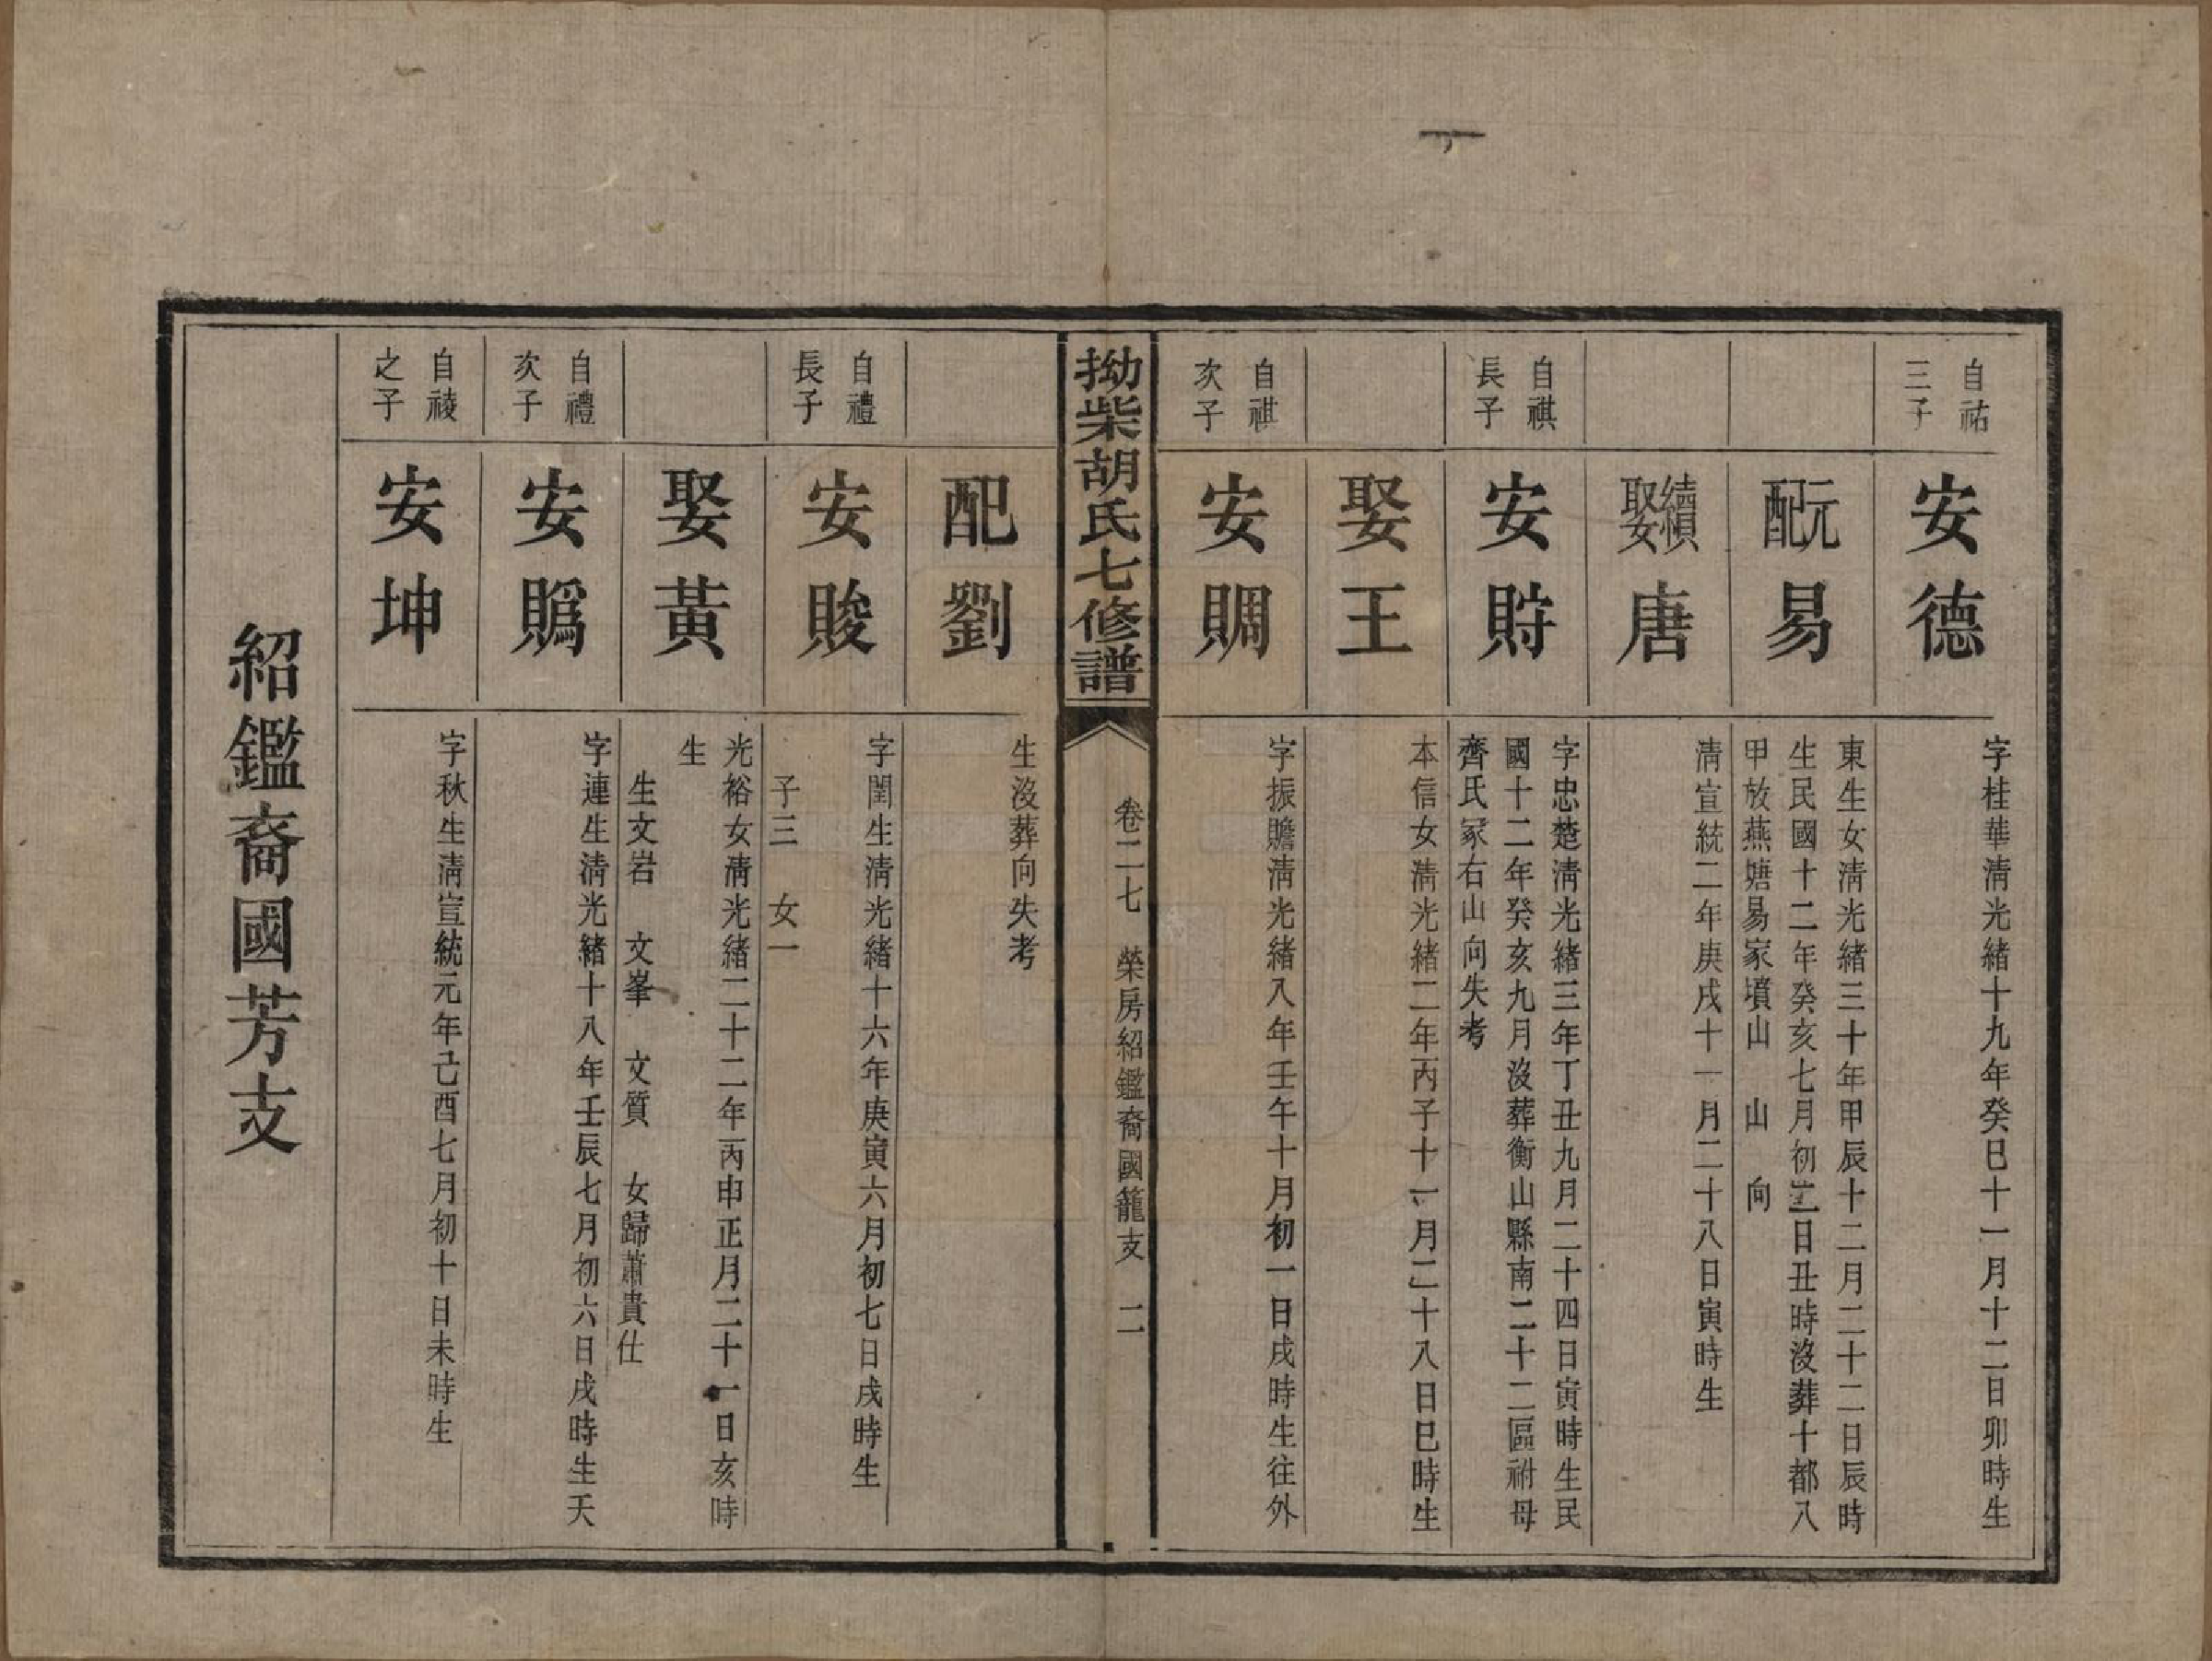 自祐
三子
安德
字桂華清光緒十九年癸巳十一月十二日卯時生
元配易
東生女清光緒三十年甲辰十二月二十二日辰時
生民國十二年癸亥七月初二日丑時沒葬十都八
甲放燕塘易家墳山　山　向
續娶唐
清宣統二年庚戌十一月二十八日寅時生
自祺
長子
安貯
字忠楚清光緒三年丁丑九月二十四日寅時生民
國十二年癸亥九月沒葬衡山縣南二十二區祔母
齊氏冢右山向失考
娶王
本信女清光緒二年丙子十一月二十八日巳時生
自祺
次子
安賙
字振贍清光緒八年壬午十月初一日戌時生往外
拗柴胡氏七修譜
卷二七　榮房紹鑑裔國籠支　二
配劉
生沒葬向失考
自禮
長子
安賐
字閏生清光緒十六年庚寅六月初七日戌時生
子三　女一
娶黃
光裕女清光緒二十二年丙申正月二十一日亥時
生
生文岩　文峯　文質　女歸蕭貴仕
自禮
次子
安賜
字連生清光緒十八年壬辰七月初六日戌時生夭
自祾
之子
安坤
字秋生清宣統元年己酉七月初十日未時生
紹鑑裔國芳支